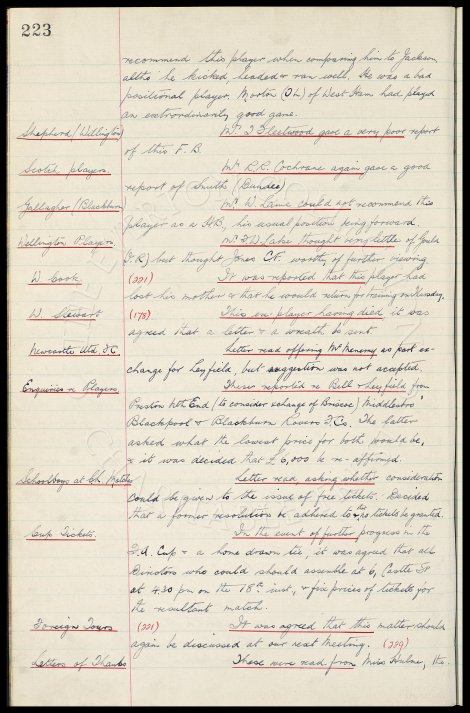 223
recommend this player when comparing him to Jackson,
altho' he kicked headed & ran well. He was a bad
positional player. Morton (OL) of West Ham had played
an extraordinarily good game.
Shepherd / Wellington) Mr. J Fleetwood gave a very poor report
of this F.B.
Scotch players. Mr R.R. Cochrane again gave a good
report of Smith (Dundee)
Gallagher / Blackburn Mr W. Laine could not recommend this
player as a H.B, his usual position being forward.
Wellington Players. thought very little of Gould
but thought Jones C.F. worthy of further viewing
W Cook. (221) It was reported that this player had
lost his mother & that he would return for training on Thursday.
W. Stewart (178) This ex player having died it was
agreed that a letter & a wreath be sent
Newcastle Utd. F.C Letter read offering Mr as part ex-
change for Leyfield, but suggestion was not accepted.
Enquiries re Players These reported re Bell & Leyfield from
Preston Nth End, (to consider exchange of Briscoe) Middlesbro'
Blackpool & Blackburn Rovers F.Cs. The latter
asked what the lowest price for both would be,
& it was decided that £6,000 be re-affirmed.
Schoolboys at Ch. Matches Letter read asking whether consideration
could be given to the issue of free tickets. Decided
that a former resolution be adhered to & no tickets be granted.
Cup Tickets. In the event of further progress in the
F.A. Cup & a home drawn tie, it was agreed that all
Directors who could should assemble at 6, Castle St
at 4.30 pm on the 18th inst, & fix prices of tickets for
the resultant match.
Foreign Tours (221) It was agreed that this matter should
again be discussed at our next Meeting. (229)
Letters of Thanks These were read from Miss Hulme, the